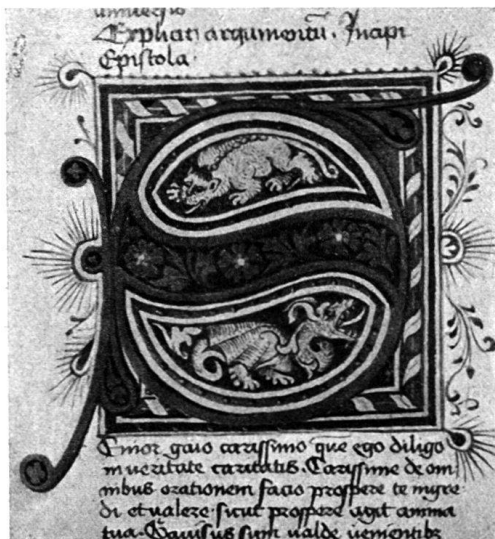 Explicit argumentũ. Incipi
Epistola.
S
Enior gaio carissimo que ego diligo
in ueritate caritatis. Carissime de om
nibus orationem facio prospere te ingre
di et ualere sicut prospere agit anima
tua. Gauisus sum valde uenientibz